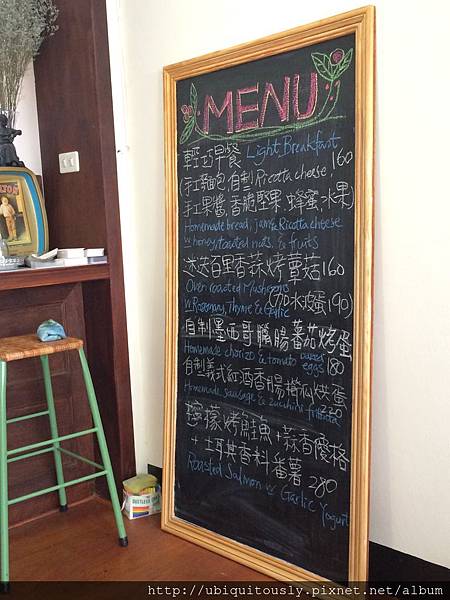 MENU
輕巧早餐 Light Breakfast
(手工麵包 自製Ricotta cheese 160
手工果醬, 香脆堅果 蜂蜜水果)
Homemade bread, jam & Ricotta cheese
w honey, toasted nuts, & fruits
迷迭百里香蒜烤蘑菇160
Oven roasted Mushrooms (加水蛋190)
w Rosemary, Thyme & Garlic
自制墨西哥臘腸蕃茄烤蛋
Homemade chorizo & tomato baked eggs 180
自製義式紅酒香腸櫛瓜烘蛋
Homemade sausage & zucchini frittata
220
檸檬烤鮭魚+蒜香優格
+土耳其香料番薯 280
Roasted Salmon w Garlic Yogurt
http://ubiquitously.pixnet.net/album